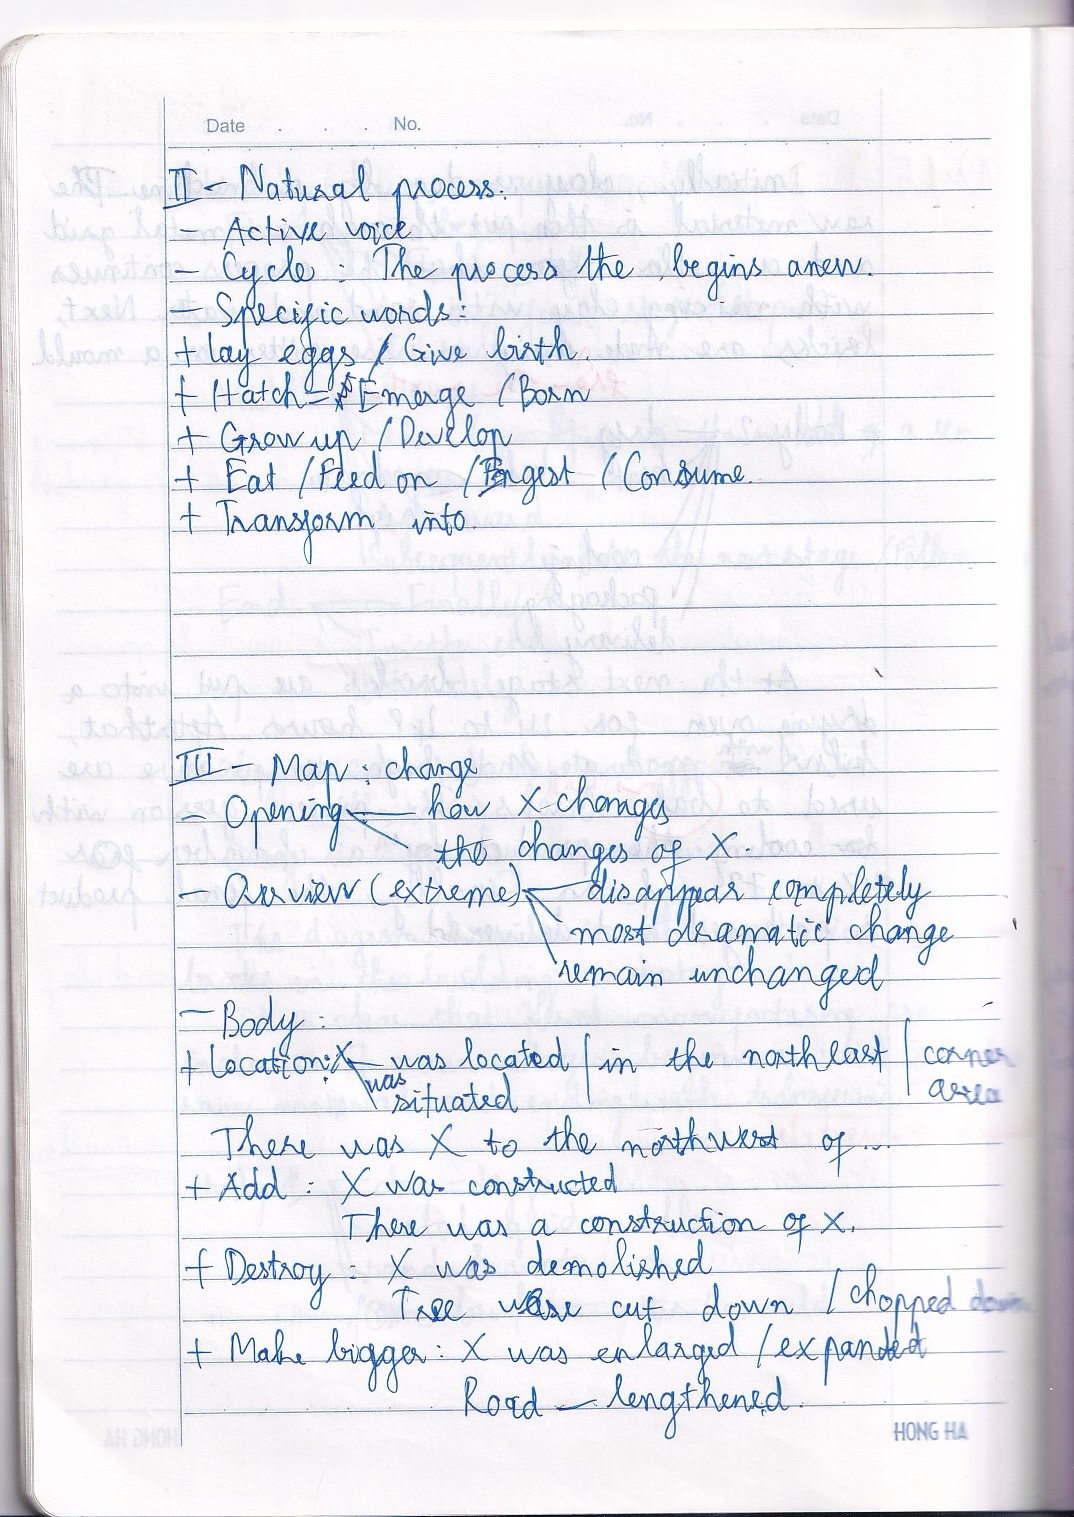 Date . . . No.
II - Natural process:
- Active voice
- Cycle : The process the begins anew.
- Specific words:
+ Lay eggs / Give birth.
+ Hatch - Emerge / Born
+ Grow up / Develop
+ Eat / Feed on / Ingest / Consume.
+ Transform into
III - Map : change
- Opening how X changes
the changes of X.
- Overview (extreme) disappear completely
most dramatic change
remain unchanged
- Body :
+ Location: X was located / in the northeast / corner
was situated area
There was X to the northwest of ...
+ Add : X was constructed
There was a construction of X.
+ Destroy : X was demolished
Tree were cut down / chopped down
+ Make bigger : X was enlarged / expanded
Road — lengthened.
HONG HA